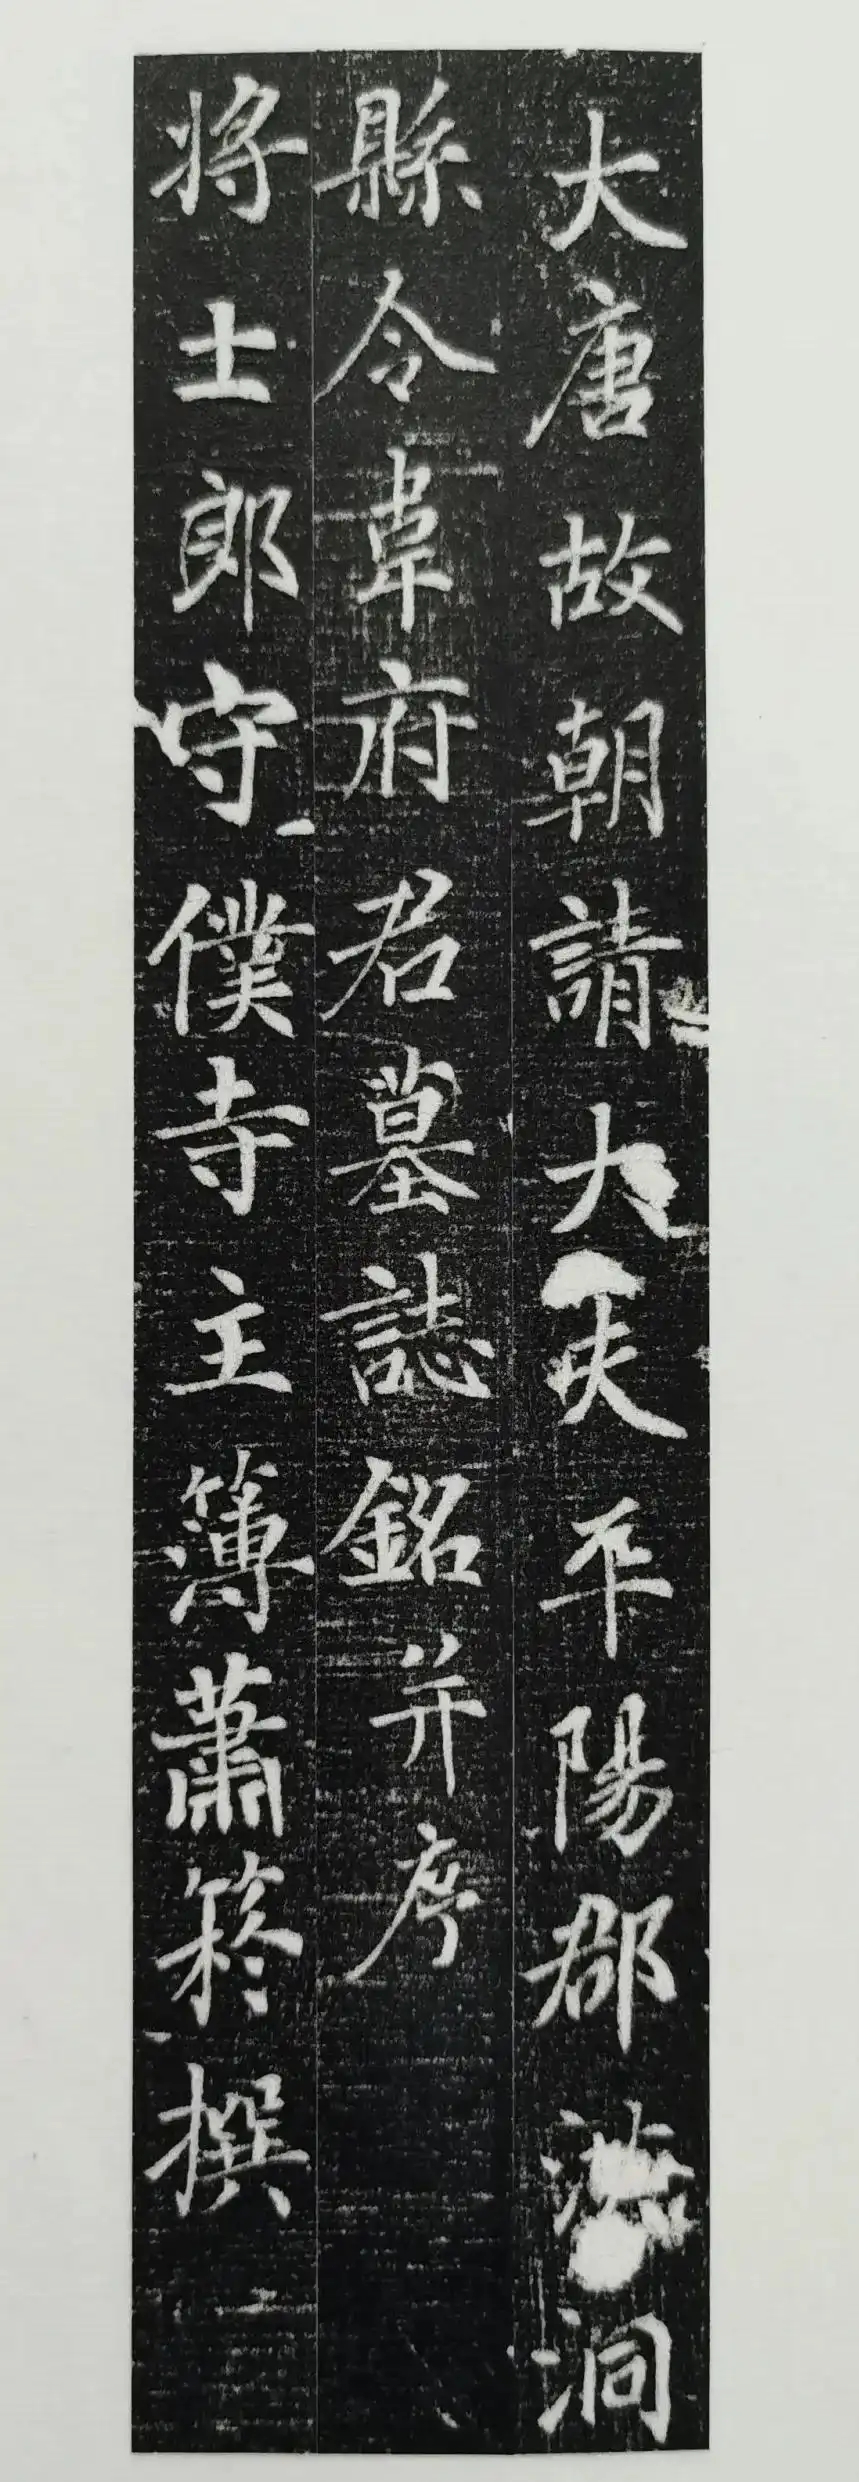 大唐故朝請大夫平陽郡洪洞
縣令韋府君墓誌銘并序
將士郎守僕寺主簿蕭撰